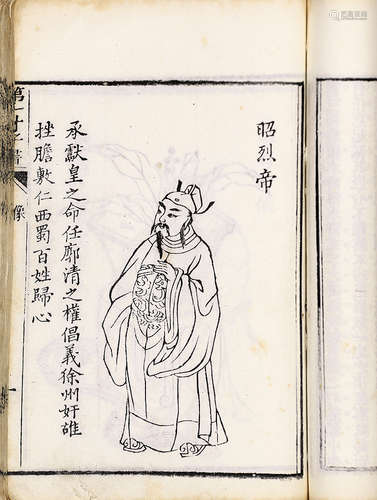 昭烈帝
承獻皇之命任廓清之權倡義徐州奸雄
挫膽敷仁西蜀百姓歸心
第一才子書
像
一